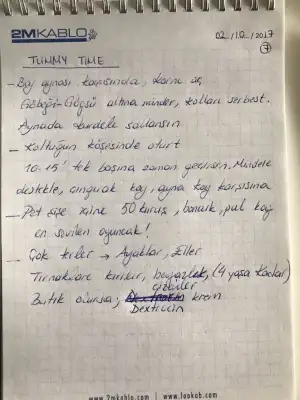 2MKABLO
02/10/2017
7
TUMMY TIME
- Boy aynası karşısında, karnı aç,
Göbeği-Göğsü altına minder, kolları serbest.
Aynada kurdele sallansın
- Koltuğun köşesinde oturt
10-15' tek başına zaman geçirsin, Minderle
destekle, çıngırak koy, ayna koy karşısına
- Pet şişe içine 50 kuruş, boncuk, pul koy
en sevilen oyuncak!
- Çok terler → Ayaklar, Eller
Tırnakları kırılır, beyazlık, (4 yaşa kadar)
çizgiler
Batık olursa, krem
Dextrocin
www.2mkablo.com | www.lookob.com